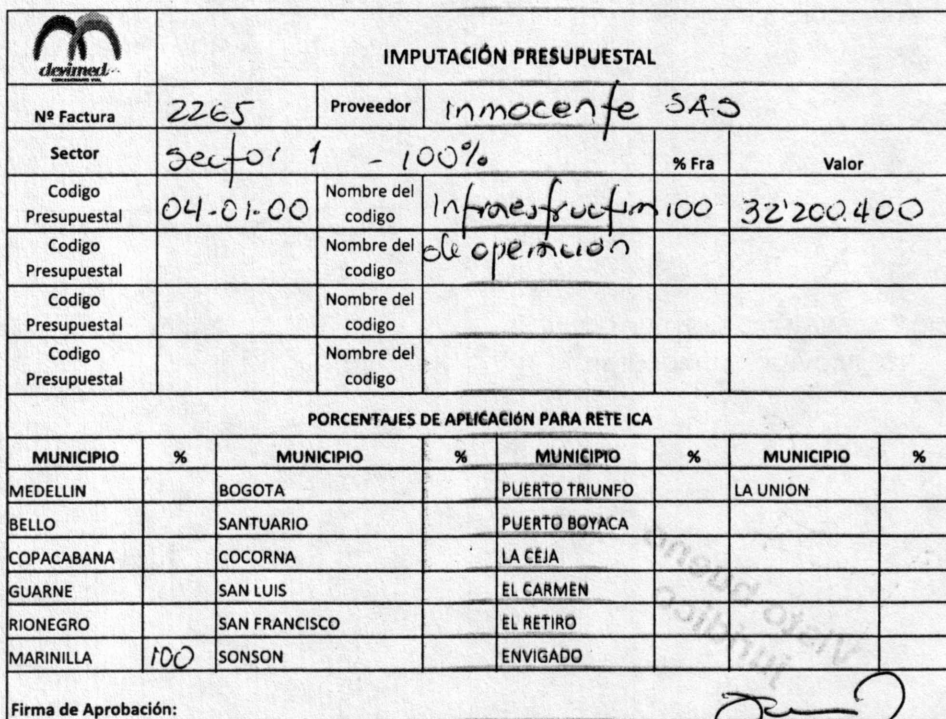 devimed
IMPUTACIÓN PRESUPUESTAL
Nº Factura 2265 Proveedor Inmocente SAS
Sector Sector 1 - 100% % Fra Valor
Codigo Presupuestal 04-01-00 Nombre del codigo Infraestructura 100 32'200.400
Codigo Presupuestal Nombre del codigo de operación
Codigo Presupuestal Nombre del codigo
Codigo Presupuestal Nombre del codigo
PORCENTAJES DE APLICACIÓN PARA RETE ICA
MUNICIPIO % MUNICIPIO % MUNICIPIO % MUNICIPIO %
MEDELLIN BOGOTA PUERTO TRIUNFO LA UNION
BELLO SANTUARIO PUERTO BOYACA
COPACABANA COCORNA LA CEJA
GUARNE SAN LUIS EL CARMEN
RIONEGRO SAN FRANCISCO EL RETIRO
MARINILLA 100 SONSON ENVIGADO
Visto bueno
Jurídico
Firma de Aprobación: